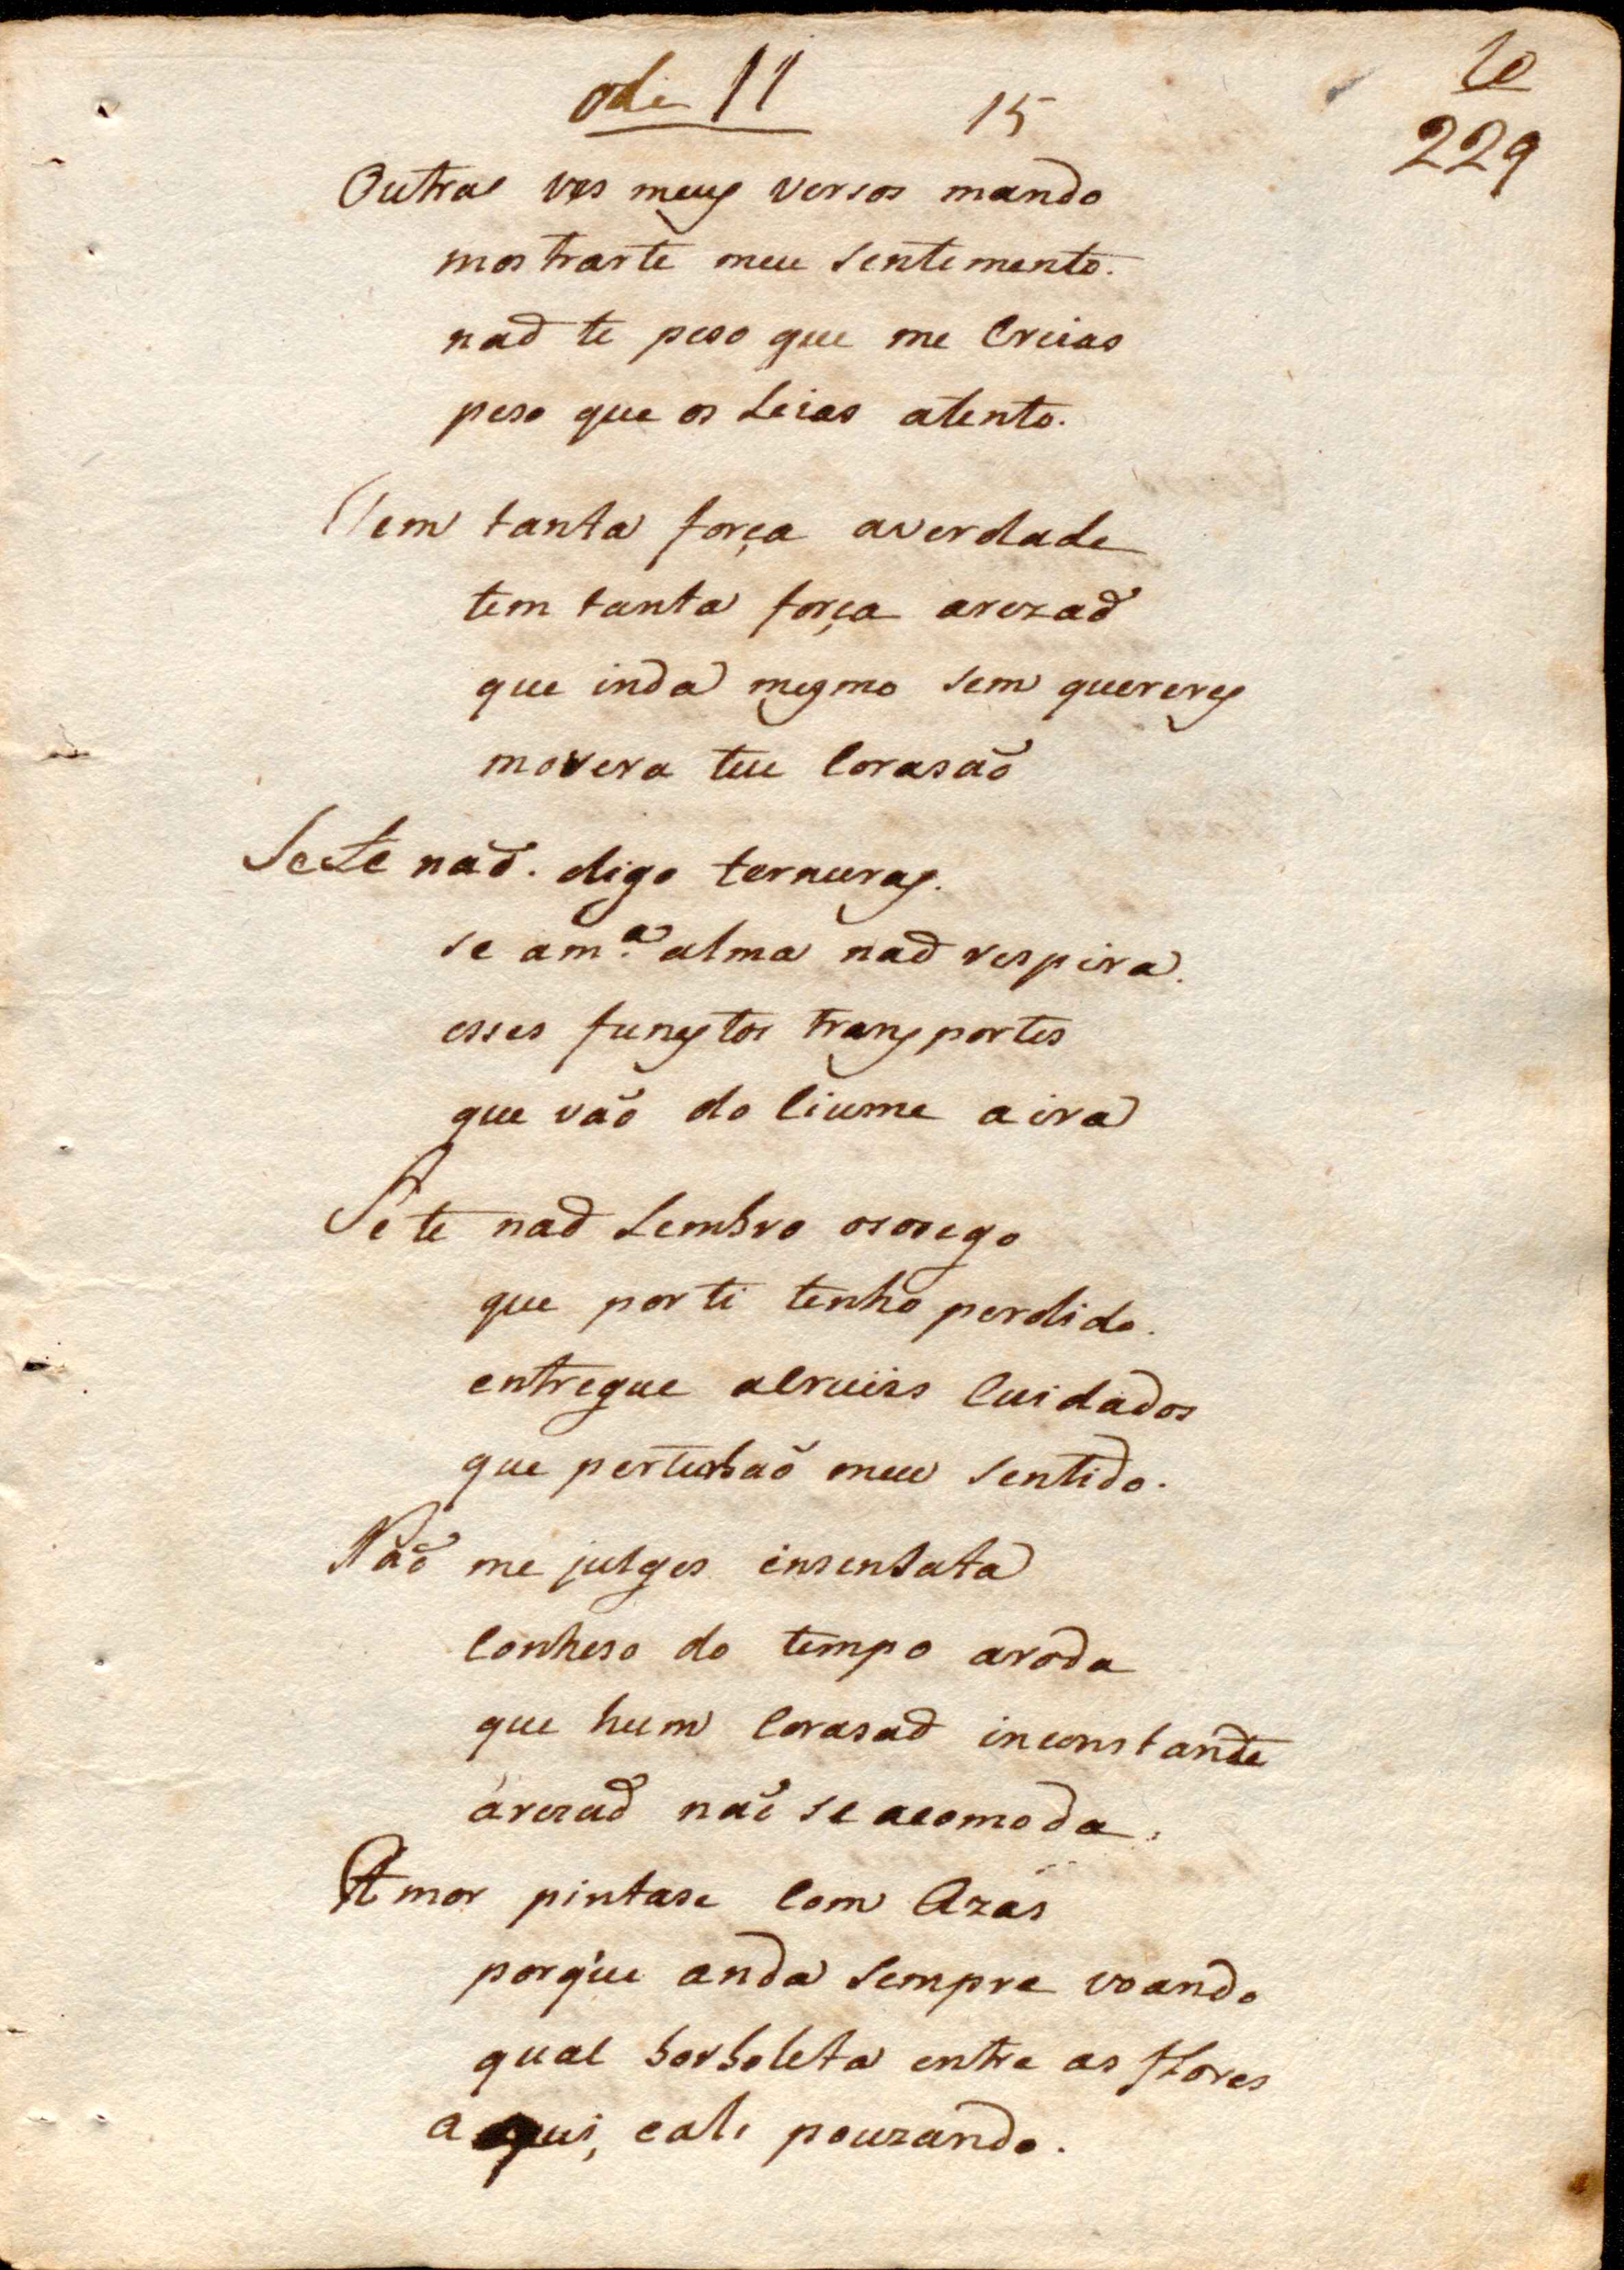 ode 11
15
10
229
Outras ves meus versos mando
mostrarte meu sentemento.
naõ te peso que me Creias
peso que os Leias atento.
Tem tanta força averdade
tem tanta força arezaõ
que inda mesmo sem quereres
movera teu Corasaõ
Sete naõ. digo ternuras.
se am.ª alma naõ respira.
esses funestos transportes
que vaõ do Ciume a ira
Se te naõ Lembro ososego
que por ti tenho perdido.
entregue acrueis Cuidados
que perturbaõ meu sentido.
Naõ me julges insensata
Conheso do tempo aroda
que hum Corasaõ inconstande
árezaõ naõ se acomoda.
Amor pintase Com Azas
porque anda sempre voando
qual borboleta entre as flores
aqui, eali pouzando.